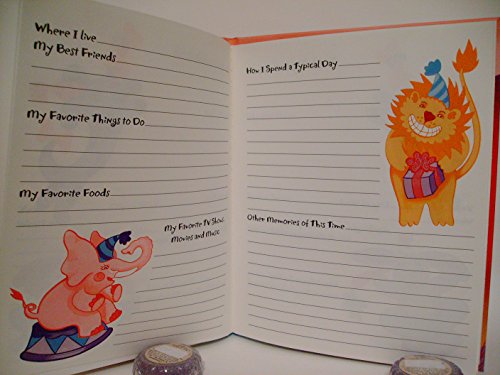 Where I live
My Best Friends
My Favorite Things to Do
My Favorite Foods
My Favorite TV Shows,
Movies and Music
How I Spend a Typical Day
Other Memories of This Time